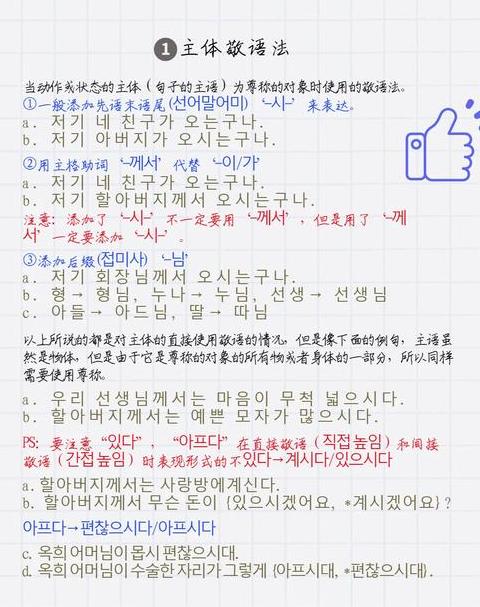 1 主体敬语法
当动作或状态的主体(句子的主语)为尊称的对象时使用的敬语法。
①一般添加先语末语尾(선어말어미)‘-시-’来表达。
a. 저기 네 친구가 오는구나.
b. 저기 아버지가 오시는구나.
②用主格助词‘-께서’代替‘-이/가’
a. 저기 네 친구가 오는구나.
b. 저기 할아버지께서 오시는구나.
注意: 添加了‘-시-’不一定要用‘-께서’,但是用了‘-께
서’一定要添加‘-시-’。
③添加后缀(접미사)‘-님’
a. 저기 회장님께서 오시는구나.
b. 형→ 형님, 누나→ 누님, 선생→ 선생님
c. 아들→ 아드님, 딸→ 따님
以上所说的都是对主体的直接使用敬语的情况,但是像下面的例句,主语虽
然是物体,但是由于它是尊称的对象的所有物或者身体的一部分,所以同样
需要使用尊称。
a. 우리 선생님께서는 마음이 무척 넓으시다.
b. 할아버지께서는 예쁜 모자가 많으시다.
PS: 要注意“있다”,“아프다”在直接敬语(직접높임)和间接
敬语(간접높임)时表现形式的不있다→계시다/있으시다
a. 할아버지께서는 사랑방에계신다.
b. 할아버지께서 무슨 돈이 {있으시겠어요, *계시겠어요}?
아프다→편찮으시다/아프시다
c. 옥희 어머님이 몹시 편찮으시대.
d. 옥희 어머님이 수술한 자리가 그렇게 {아프시대, *편찮으시대}.